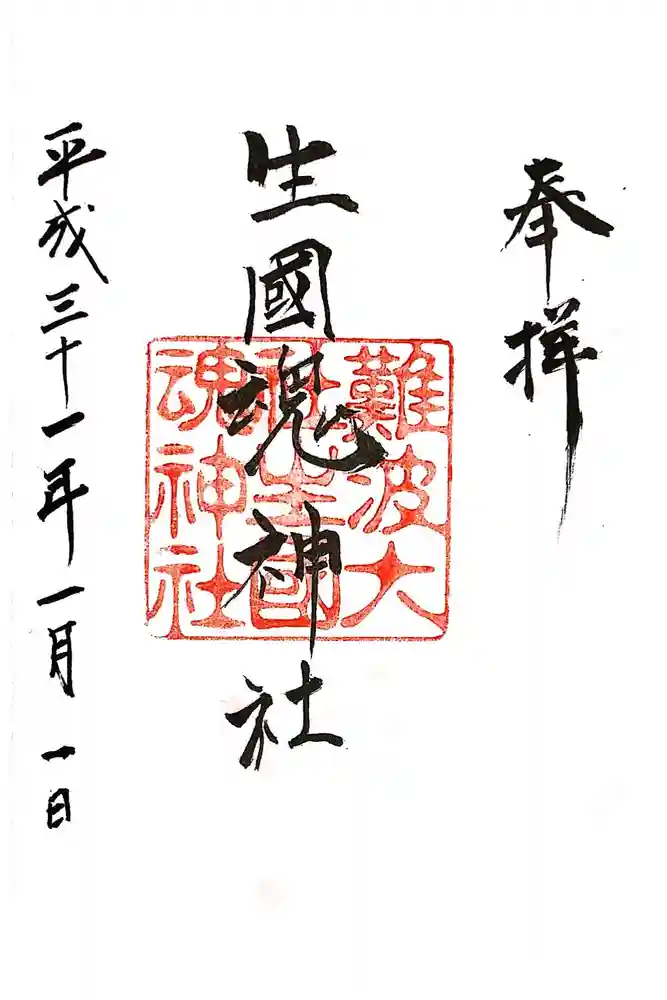 奉拝
生國魂神社
難波大
社生國
魂神社
平成三十一年一月一日